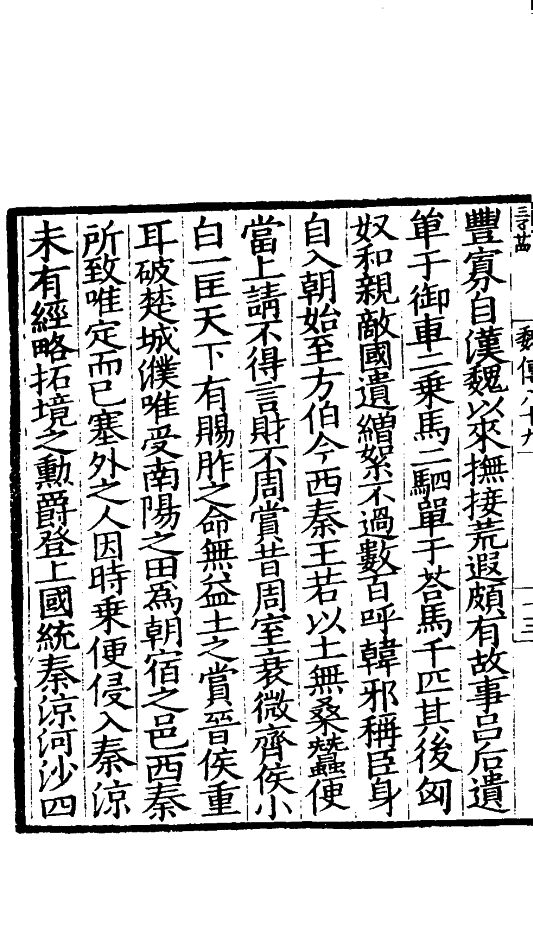 魏傳八十九
豐寡自漢魏以來撫接荒遐頗有故事吕后遺
单于御車二乗馬二駟單于荅馬千匹其後匈
奴和親敵國遺繒絮不過數百呼韓邪稱臣身
自入朝始至方伯今西秦王若以土無桑蠶便
當上請不得言財不周賞昔周室衰微齊侯小
白一匡天下有賜胙之命無益土之賞晉侯重
耳破楚城濮唯受南陽之田爲朝宿之邑西秦
所致唯定而已塞外之人因時乗便侵入秦凉
未有經略拓境之勳爵登上國統秦凉河沙四